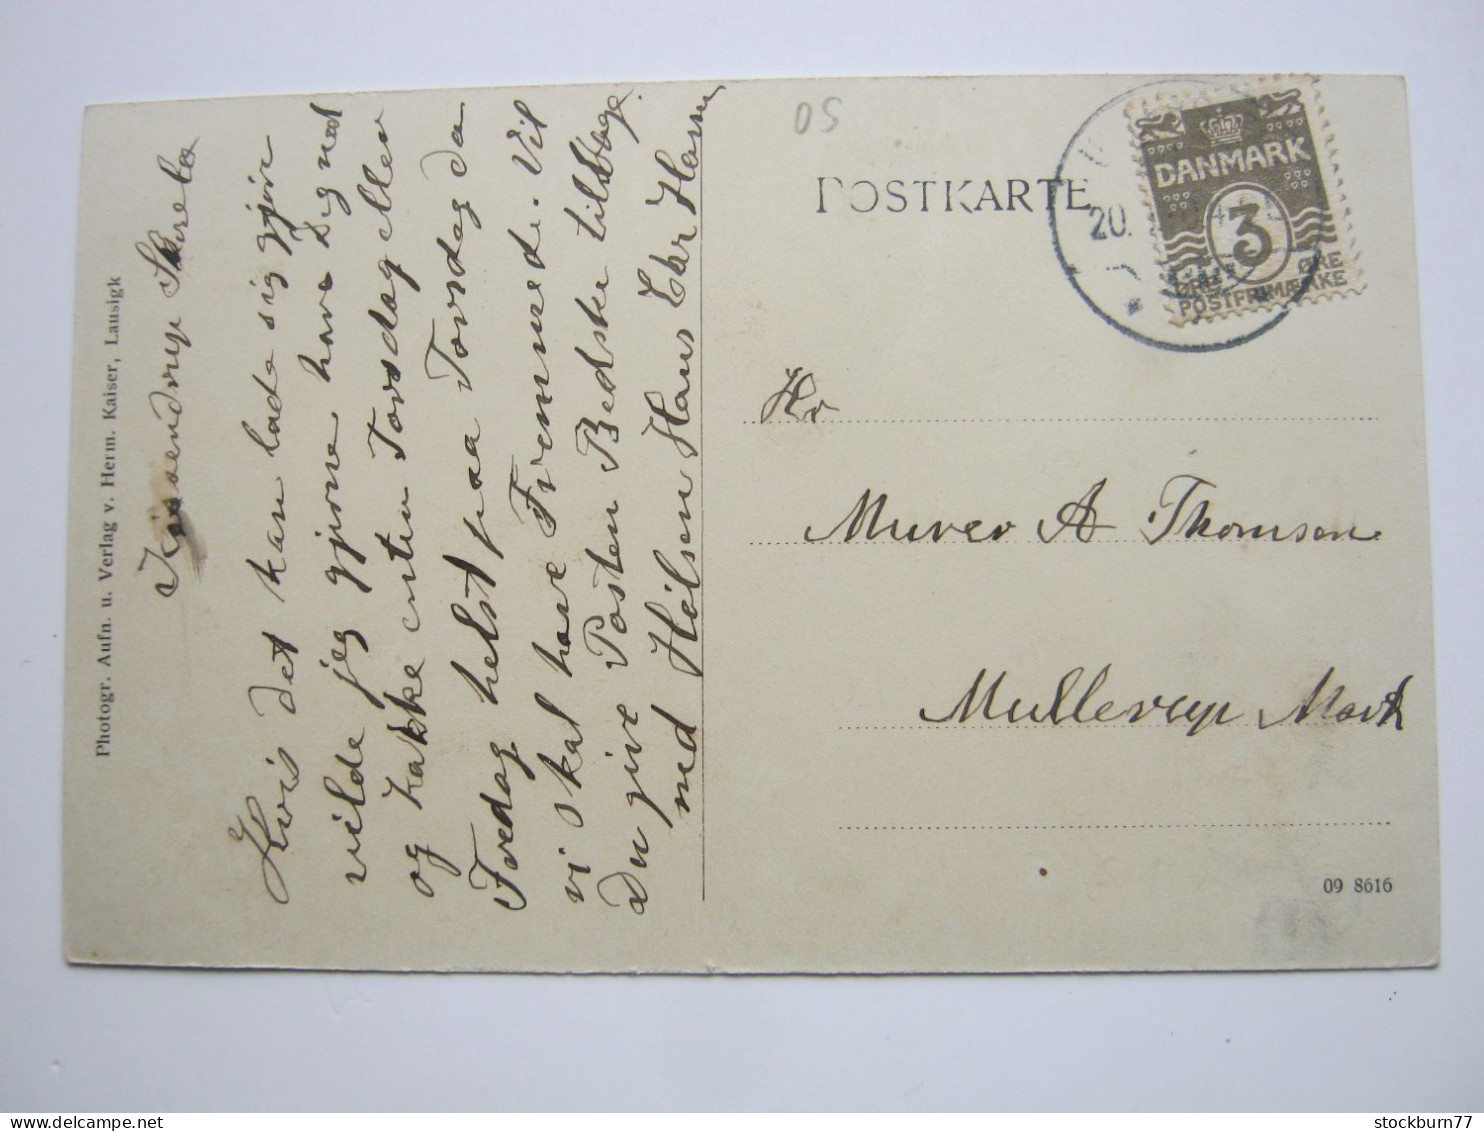 Photogr. Aufn. u. Verlag v. Herm. Kaiser, Lausigk
Hvis det kan lade sig gjøre
vilde jeg gjerne have Dig ned
og kakke enten Torsdag eller
Fredag helst paa Torsdag da
vi skal have Fremmede. Vil
Du give Posten Bedske tilbage.
med Hilsen Hans Chr Hansen
05
POSTKARTE
20.
DANMARK
3
ØRE ØRE
POSTFRIMÆRKE
Hr
Murer A Thomsen
Mullerup Mark
09 8616
stockburn77